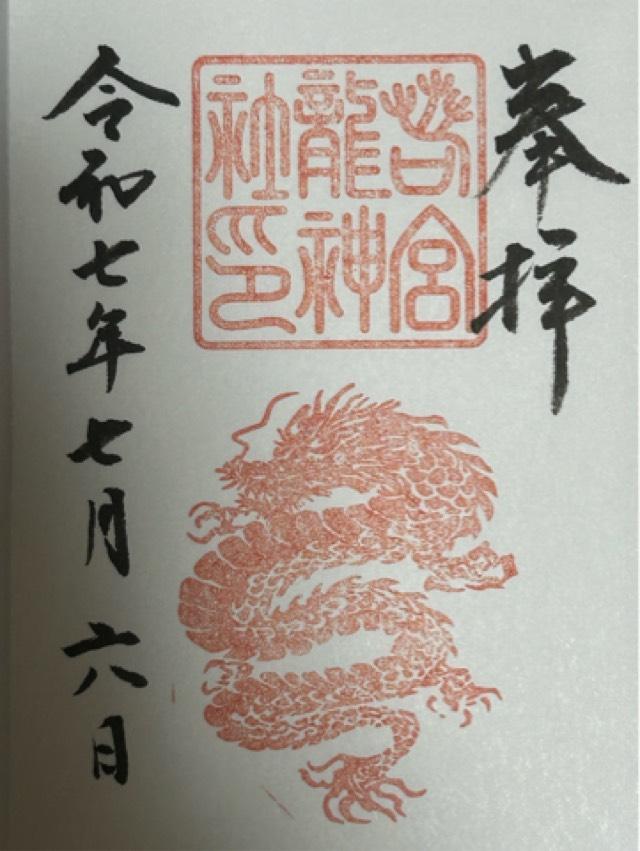 奉拝
若宮
龍神
社印
令和七年七月六日